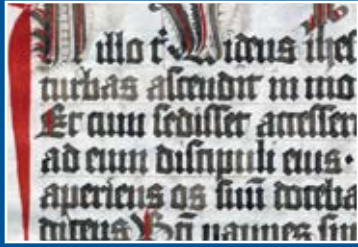 In illo t̄ Videns ihes
turbas ascendit in mo
Et cum sedisset accesser
ad eum discipuli eius ·
aperiens os suū doceba
dicens Bt̄i paupes sun